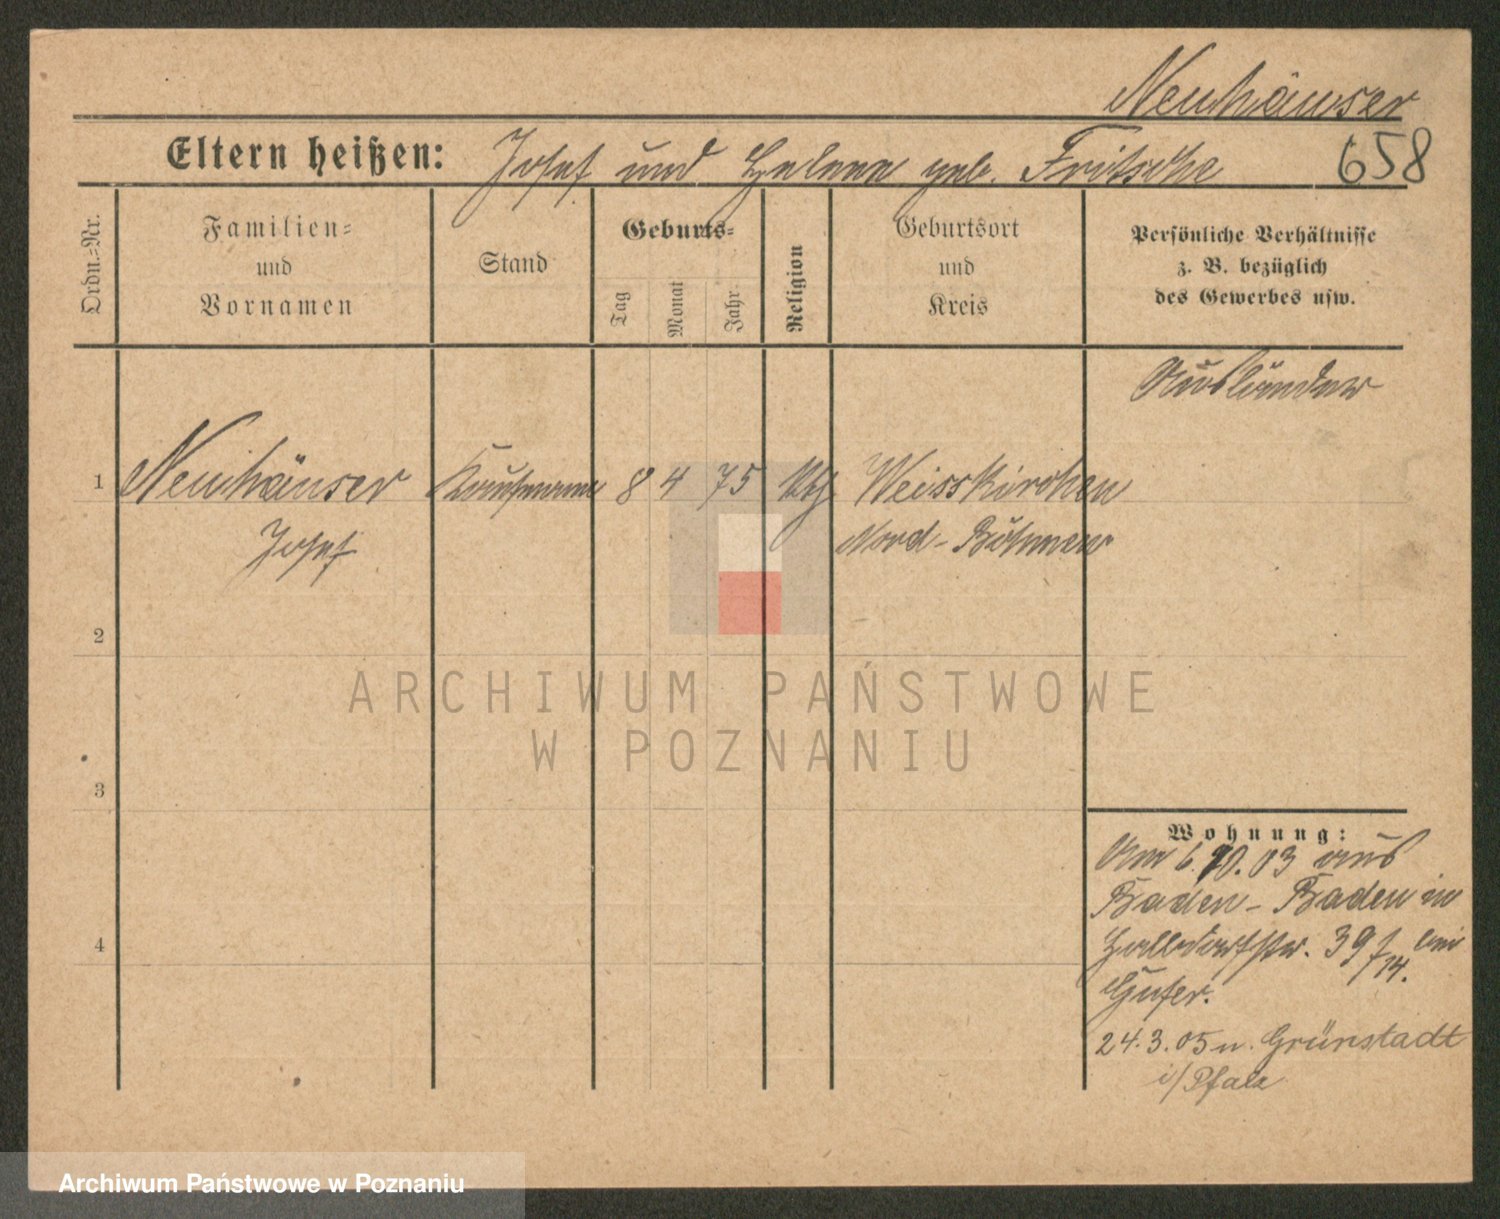 Neuhäuser
Eltern heißen: Josef und Helene geb. Fritsche 658
Ordn.-Nr.
Familien- und Vornamen
Stand
Geburts-
Tag
Monat
Jahr
Religion
Geburtsort und Kreis
Persönliche Verhältnisse
z. B. bezüglich
des Gewerbes usw.
Ausländer
1 Neuhäuser Kaufmann 8 4 75 Weisskirchen
Josef Nord-Böhmen
2
ARCHIWUM PAŃSTWOWE
W POZNANIU
3
Wohnung:
Am 6.10.03 aus
Baden-Baden in
Halbdorfstr. 39 I/14. bei
24.3.05 n. Grünstadt
i/Pfalz
4
Archiwum Państwowe w Poznaniu